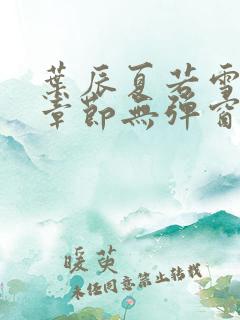 葉辰夏若雪
章節無彈窗
暖萸
未經同意禁止轉載